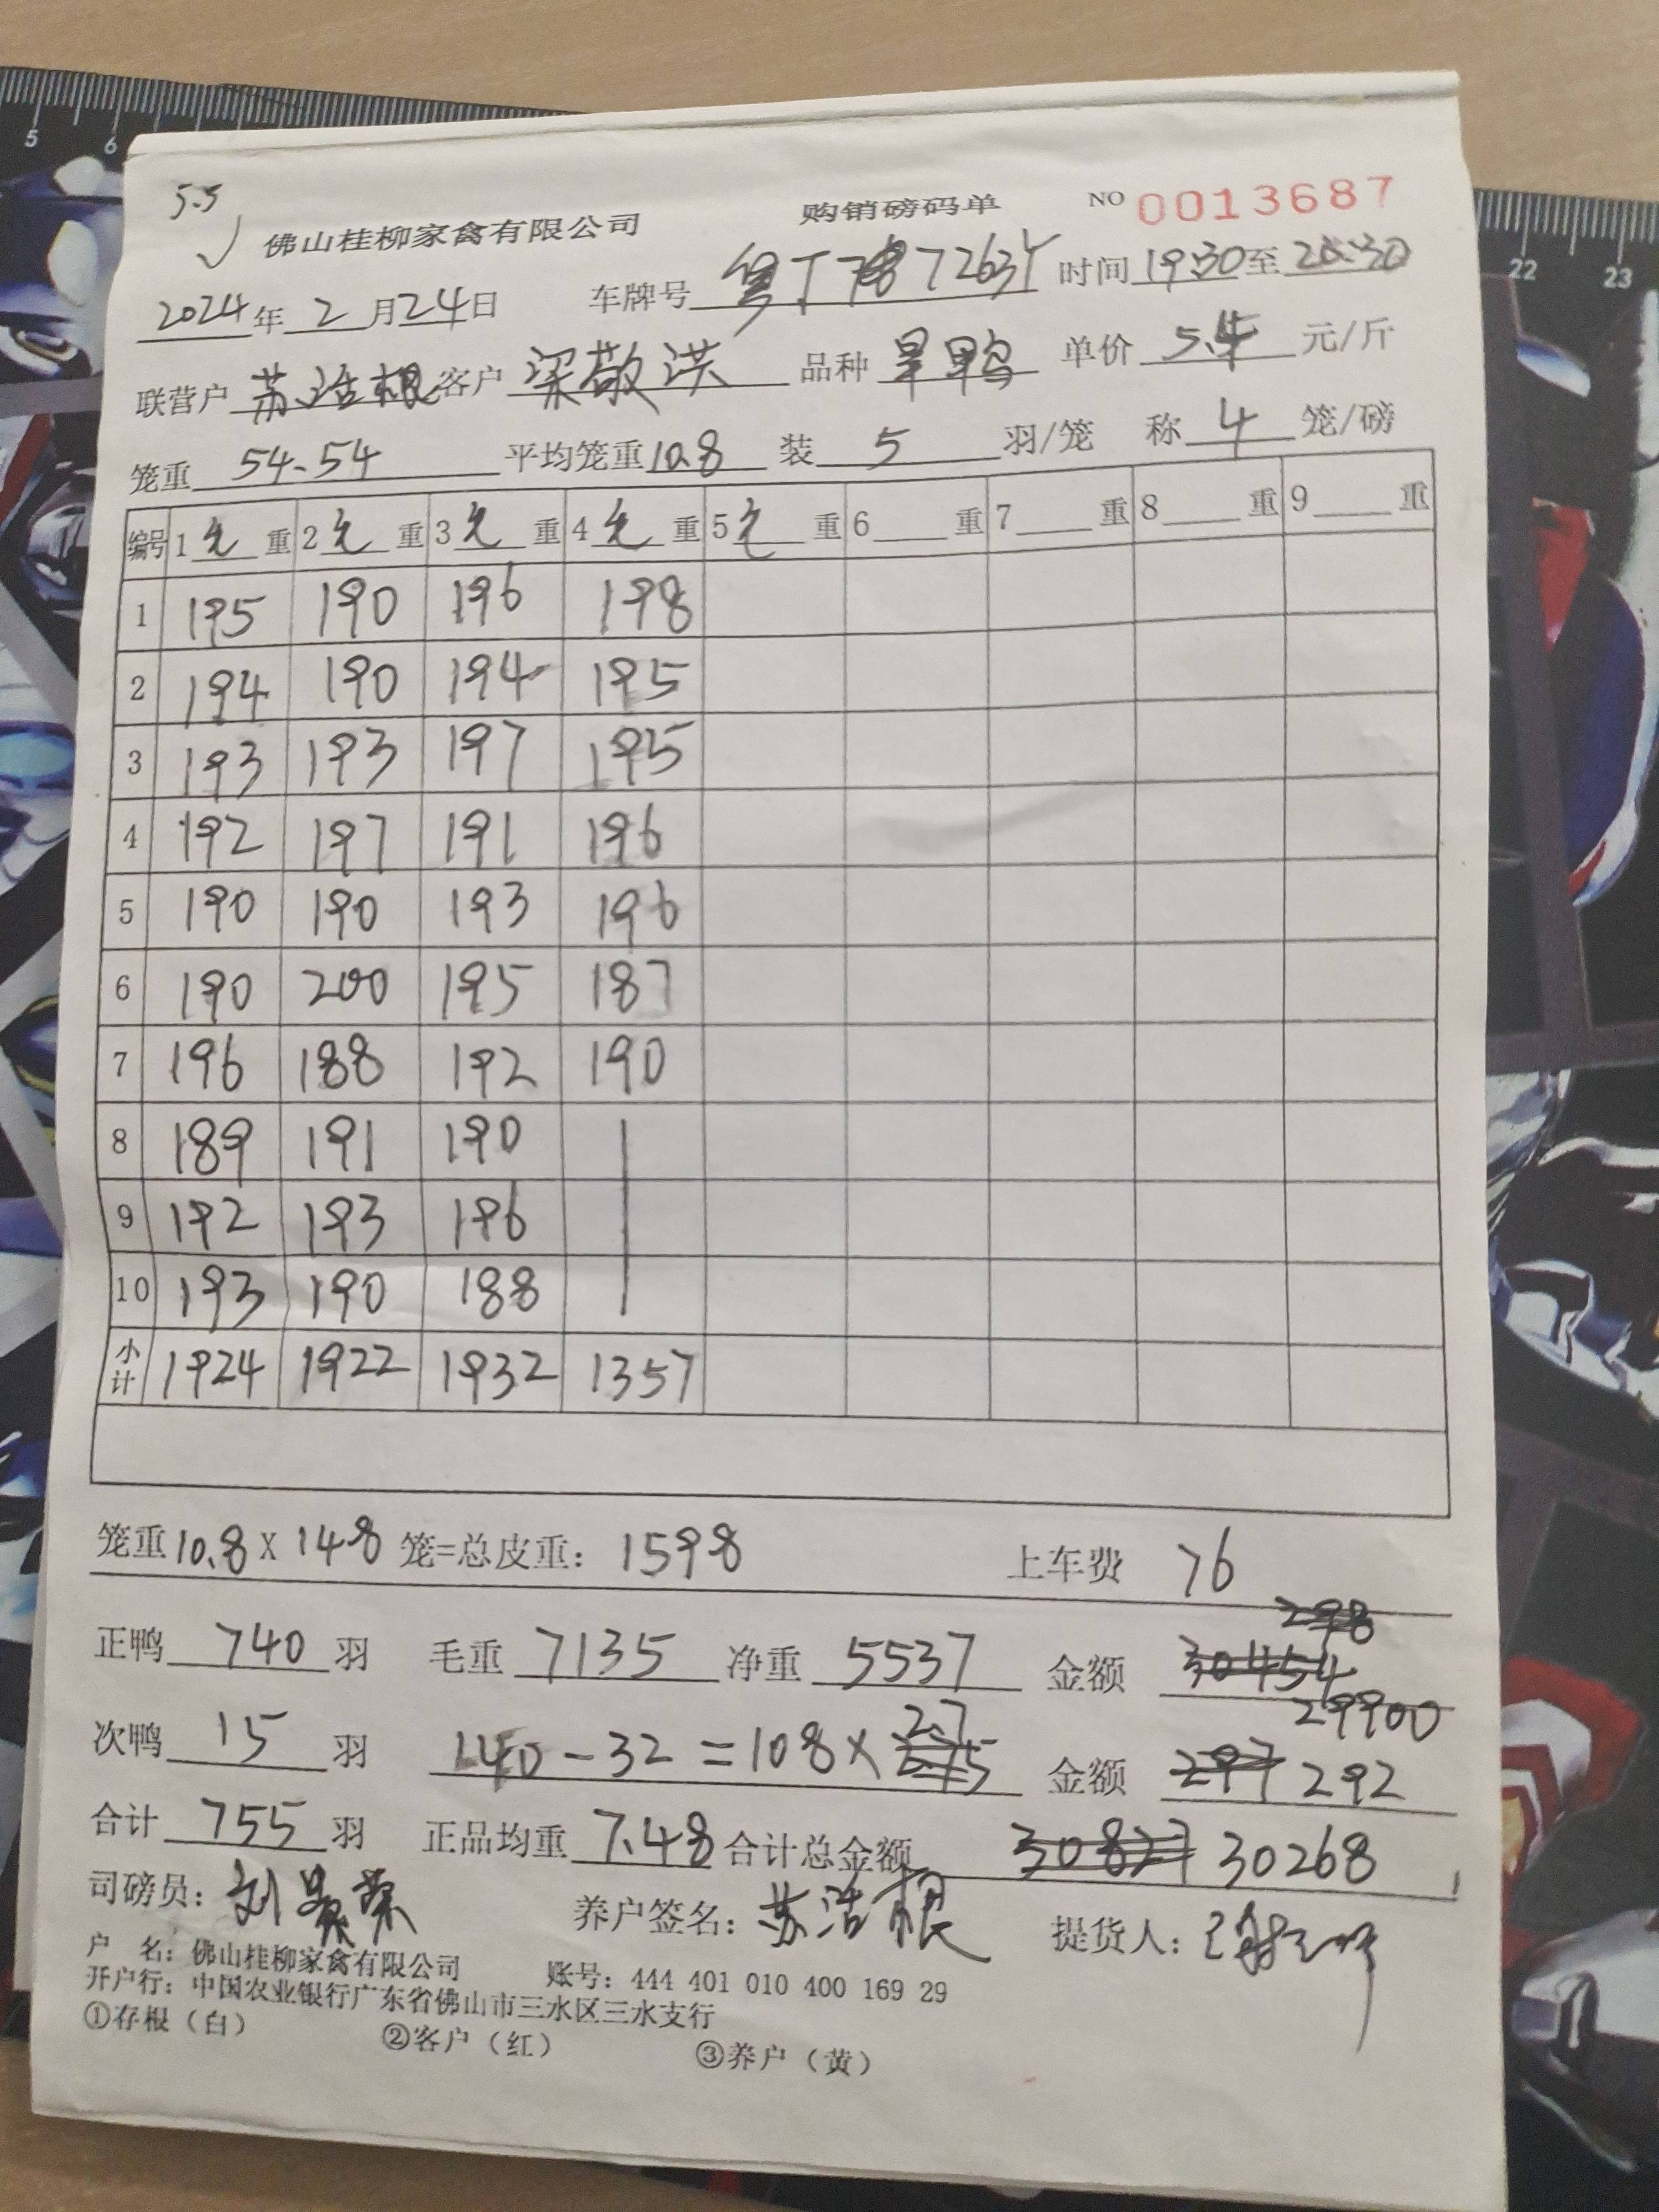 5.5
佛山桂柳家禽有限公司 购销磅码单 NO 0013687
2024年2月24日 车牌号 粤J 7263Y 时间 19:30至20:30
联营户 苏浩根 客户 梁敬洪 品种 旱鸭 单价 5.4 元/斤
笼重 54-54 平均笼重 10.8 装 5 羽/笼 称 4 笼/磅
编号 1 毛 重 2 毛 重 3 毛 重 4 毛 重 5 毛 重 6 重 7 重 8 重 9 重
1 195 190 196 198
2 194 190 194 195
3 193 193 197 195
4 192 197 191 196
5 190 190 193 196
6 190 200 195 187
7 196 188 192 190
8 189 191 190
9 192 193 196
10 193 190 188
小计 1924 1922 1932 1357
笼重 10.8 X 148 笼=总皮重: 1598 上车费 76
298
正鸭 740 羽 毛重 7135 净重 5537 金额 30454
29900
次鸭 15 羽 140-32=108× 2.7 金额 297 292
合计 755 羽 正品均重 7.48 合计总金额 30827 30268
司磅员: 刘 养户签名: 苏浩根 提货人:
户 名: 佛山桂柳家禽有限公司 账号: 444 401 010 400 169 29
开户行: 中国农业银行广东省佛山市三水区三水支行
①存根（白） ②客户（红） ③养户（黄）